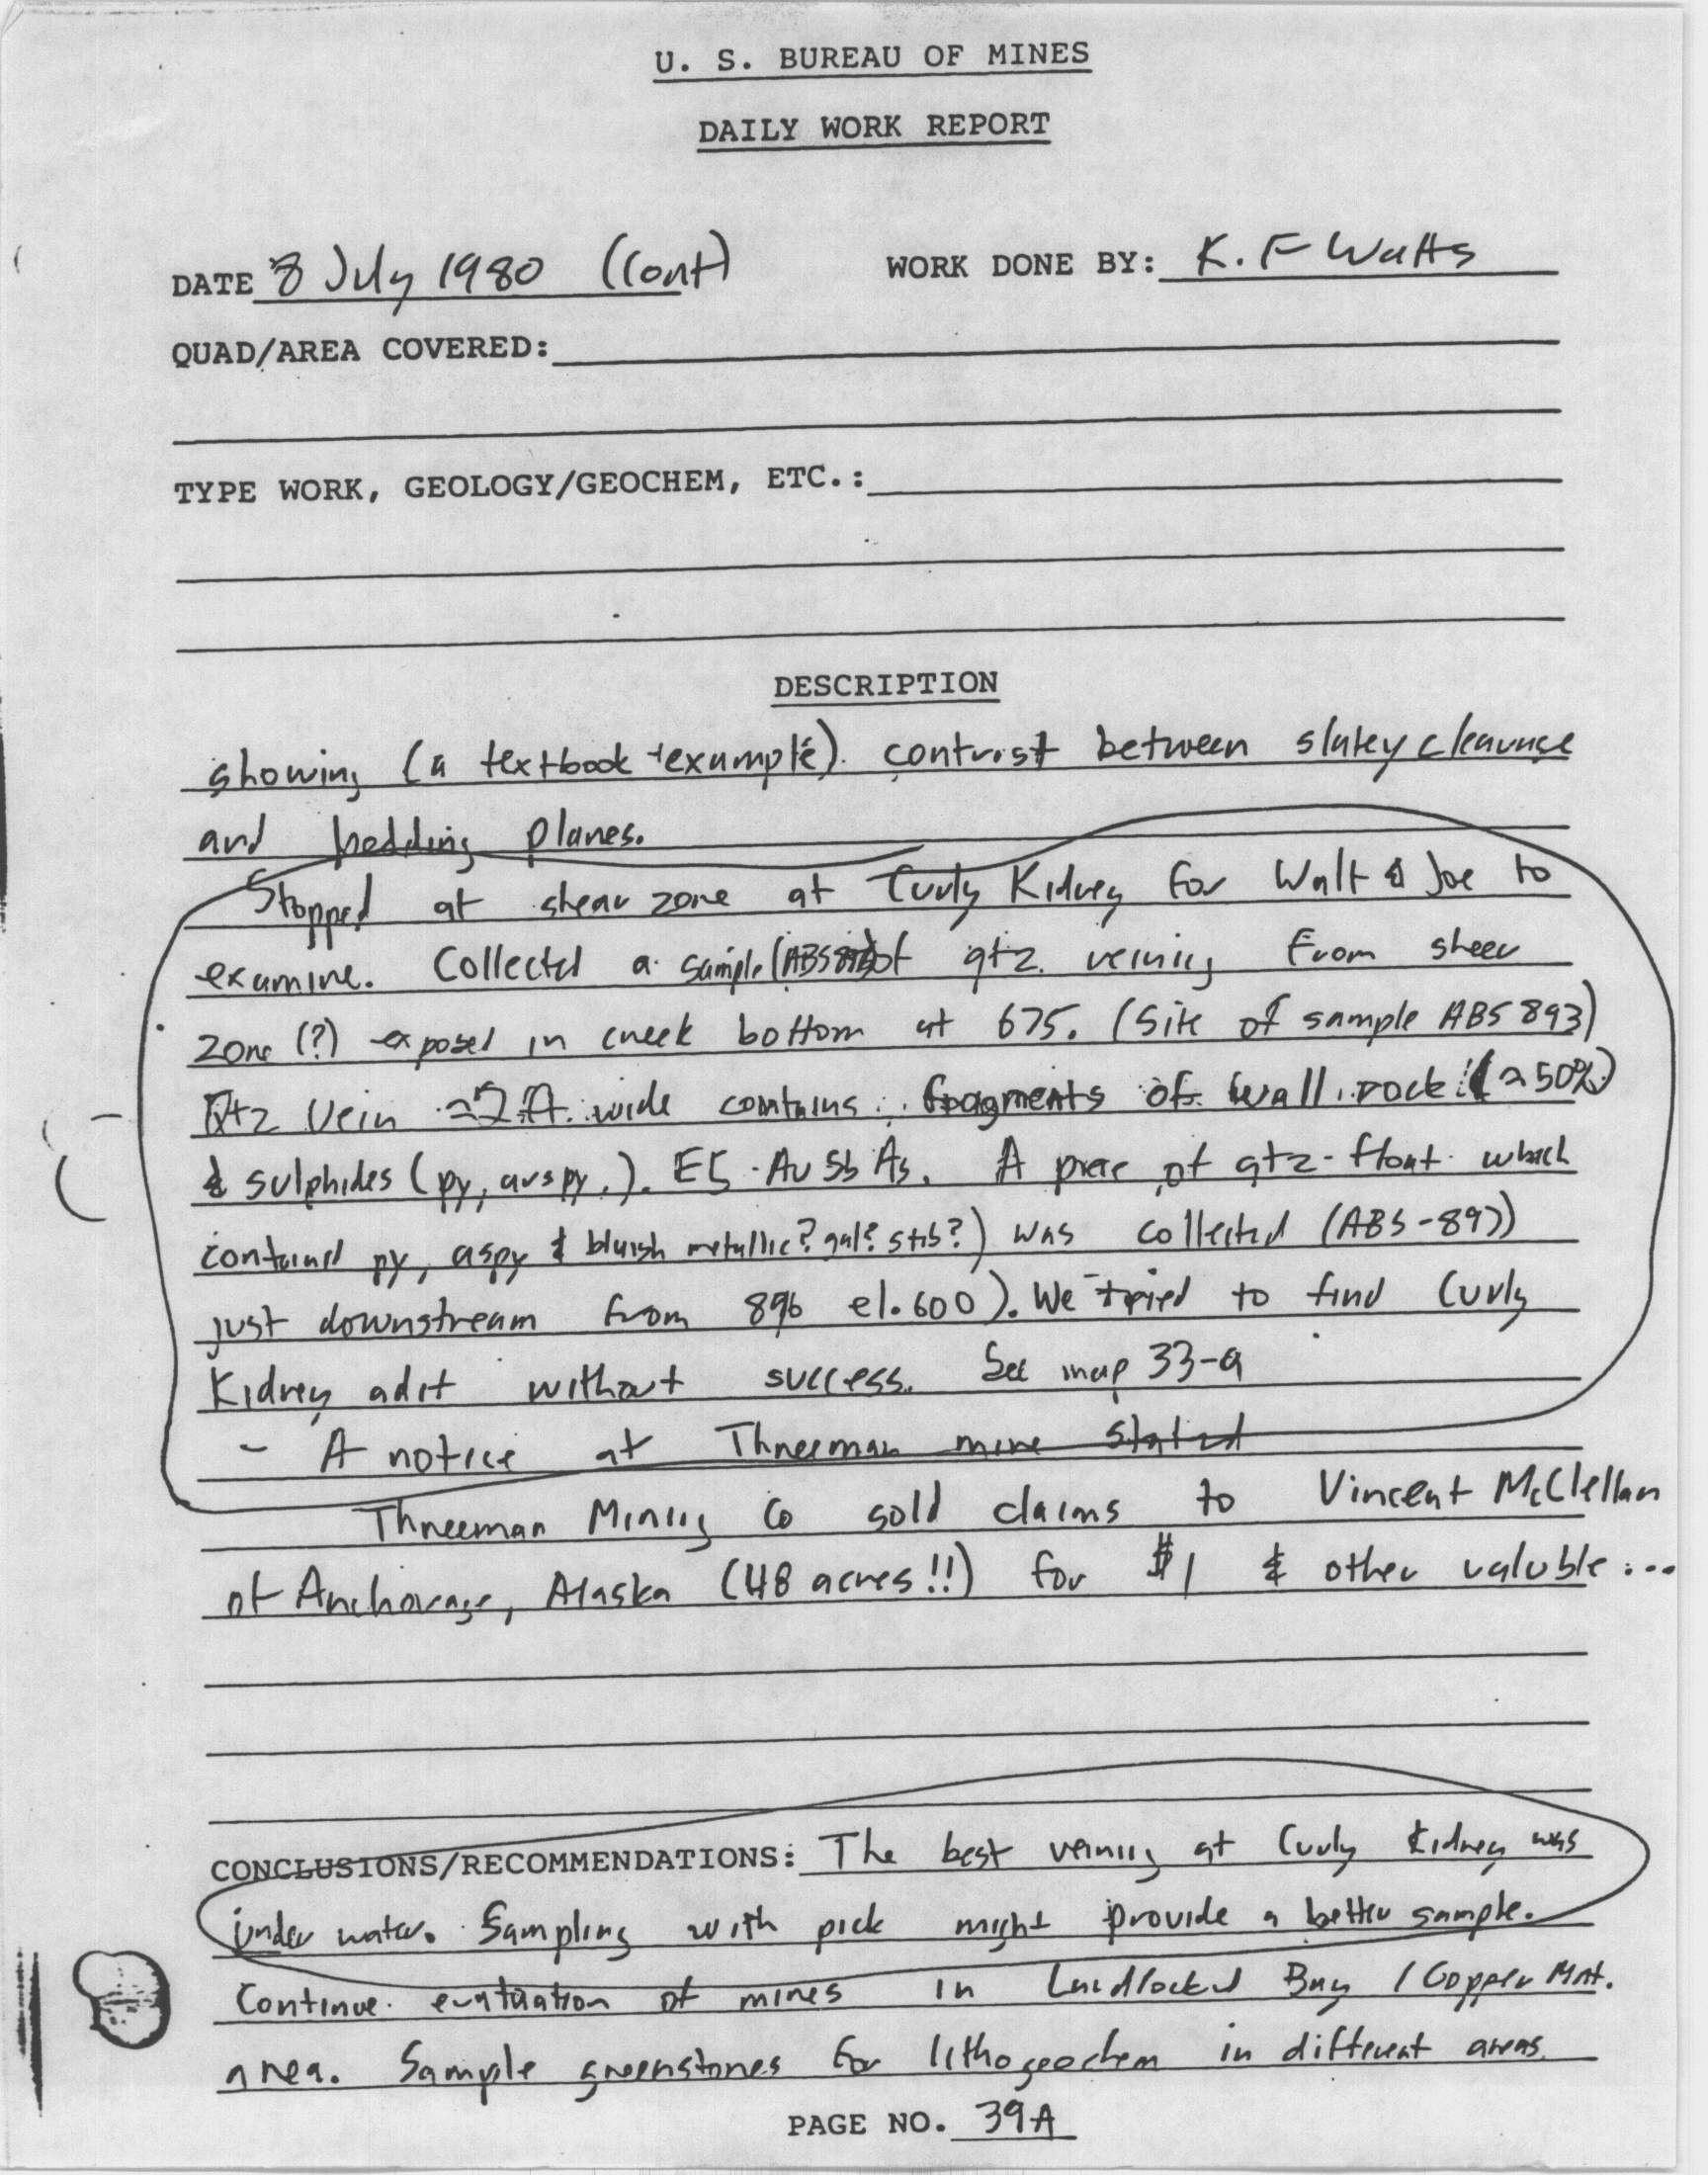 U. S. BUREAU OF MINES
DAILY WORK REPORT
DATE 8 July 1980 (Cont) WORK DONE BY: K. F Watts
QUAD/AREA COVERED:
TYPE WORK, GEOLOGY/GEOCHEM, ETC.:
DESCRIPTION
showing (a textbook example). contrast between slatey cleavage
and bedding planes.
Stopped at shear zone at Curly Kidney for Walt & Joe to
examine. Collected a sample of qtz. veining from sheer
zone (?) exposed in creek bottom at 675. (Site of sample ABS 893)
Qtz Vein ≈2 ft. wide contains fragments of wall rock (≈50%)
& sulphides (py, arspy.). ES - Au Sb As. A piece of qtz-float which
contained py, aspy & bluish metallic? gal? stib?) was collected (ABS-897)
just downstream from 896 el. 600). We tried to find Curly
Kidney adit without success. See map 33-a
- A notice at Threeman mine stated
Threeman Mining Co sold claims to Vincent McClellan
of Anchorage, Alaska (48 acres!!) for $1 & other valuble...
CONCLUSIONS/RECOMMENDATIONS: The best veining at Curly Kidney was
under water. Sampling with pick might provide a better sample.
Continue evaluation of mines in Landlocked Bay / Copper Mnt.
area. Sample greenstones for lithogeochem in different areas.
PAGE NO. 39A